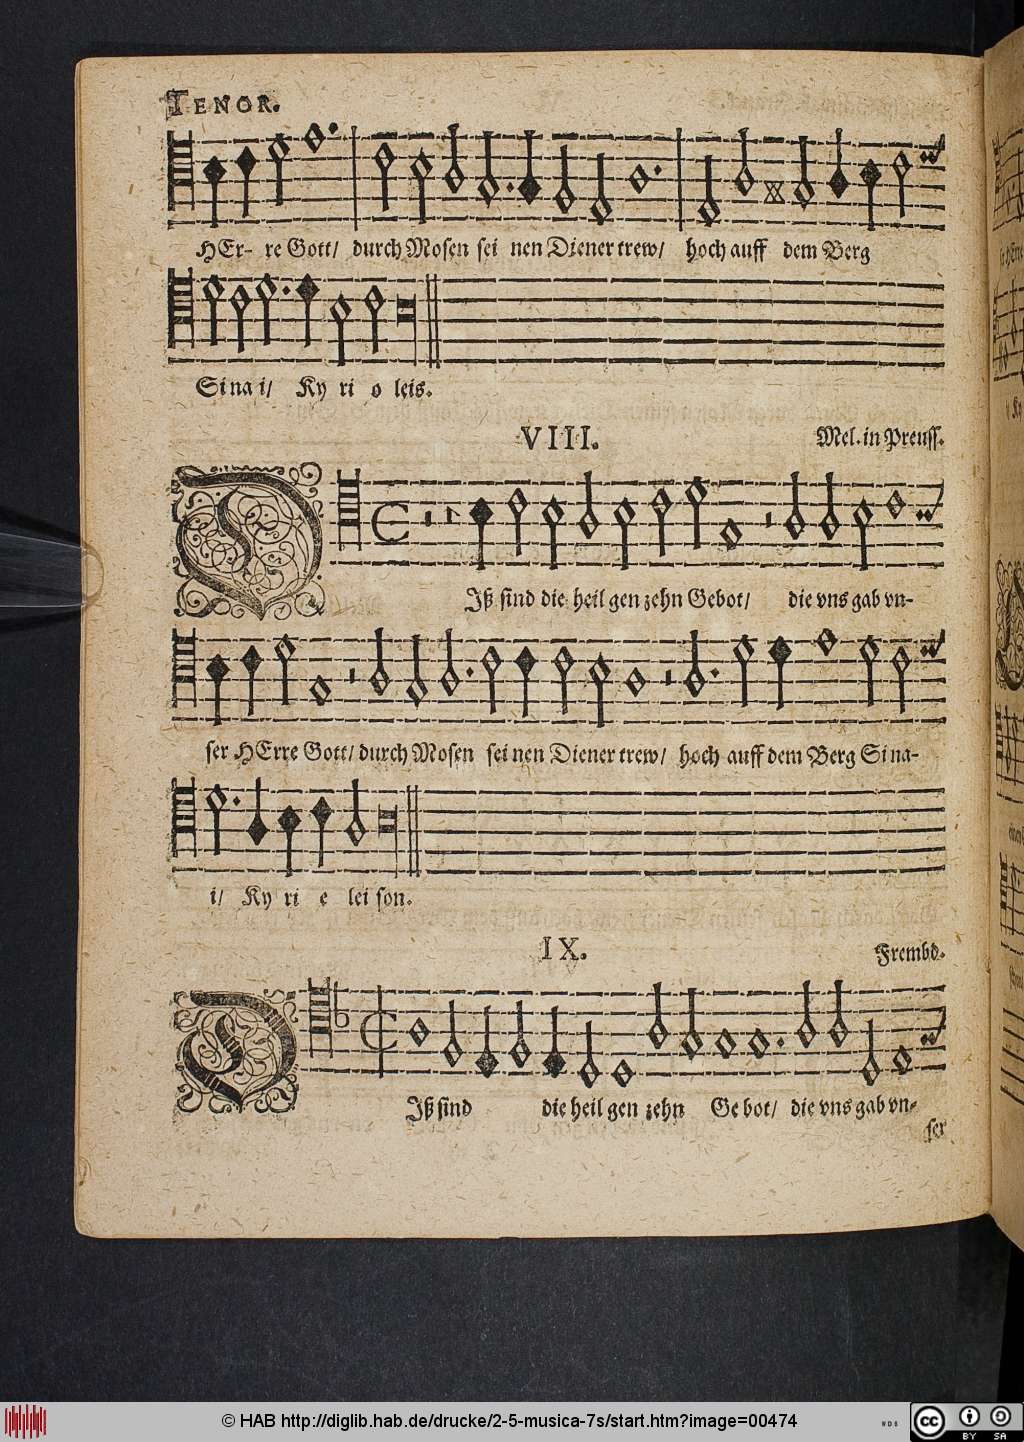 TENOR.
HEr- re Gott/ durch Mosen sei nen Diener trew/ hoch auff dem Berg
Sinai/ Ky ri o leis.
VIII. Mel. in Preuss.
DIß sind die heil gen zehn Gebot/ die vns gab vn-
ser HErre Gott/ durch Mosen sei nen Diener trew/ hoch auff dem Berg Sina-
i/ Ky ri e lei son.
IX. Frembd.
DIß sind die heil gen zehn Ge bot/ die vns gab vn-
ser
© HAB http://diglib.hab.de/drucke/2-5-musica-7s/start.htm?image=00474
cc BY SA